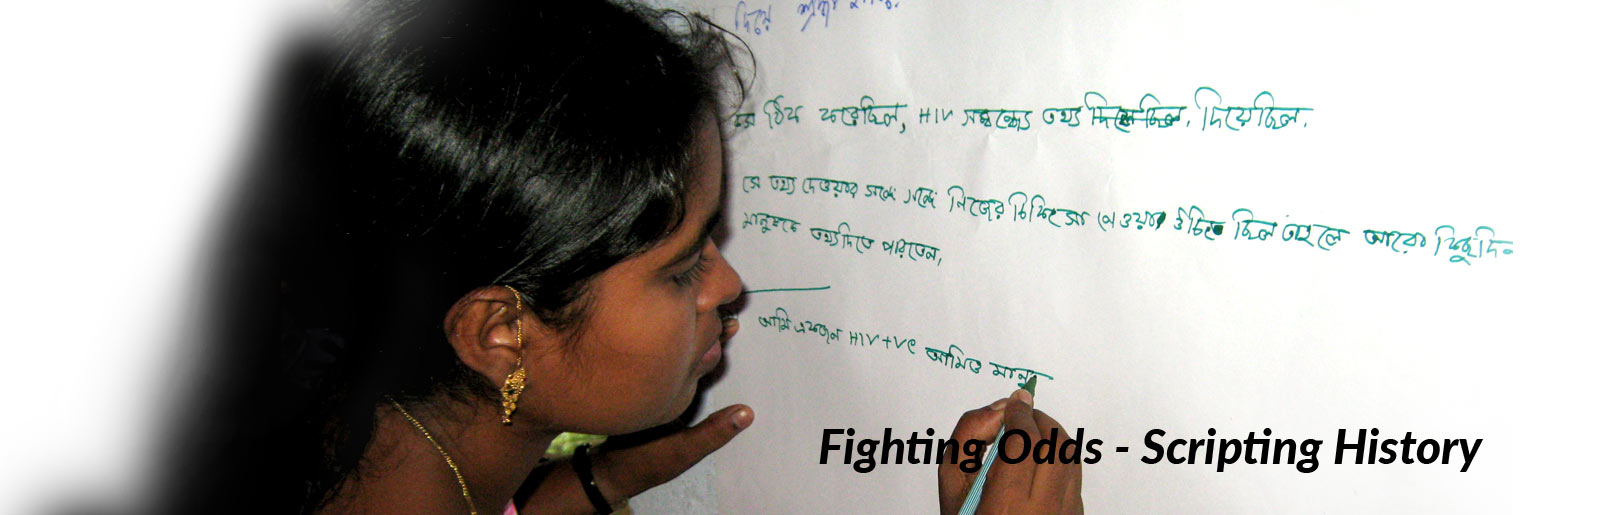 দিয়ে
ঠিক করেছিল, HIV সম্বন্ধে তথ্য দিয়েছিল.
সে তথ্য দেওয়ার সঙ্গে সঙ্গে নিজের চিকিৎসা নেওয়া উচিত ছিল তাহলে আরো কিছুদিন
মানুষকে তথ্য দিতে পারতেন,
আমি একজন HIV+ve আমিও মানু
Fighting Odds - Scripting History